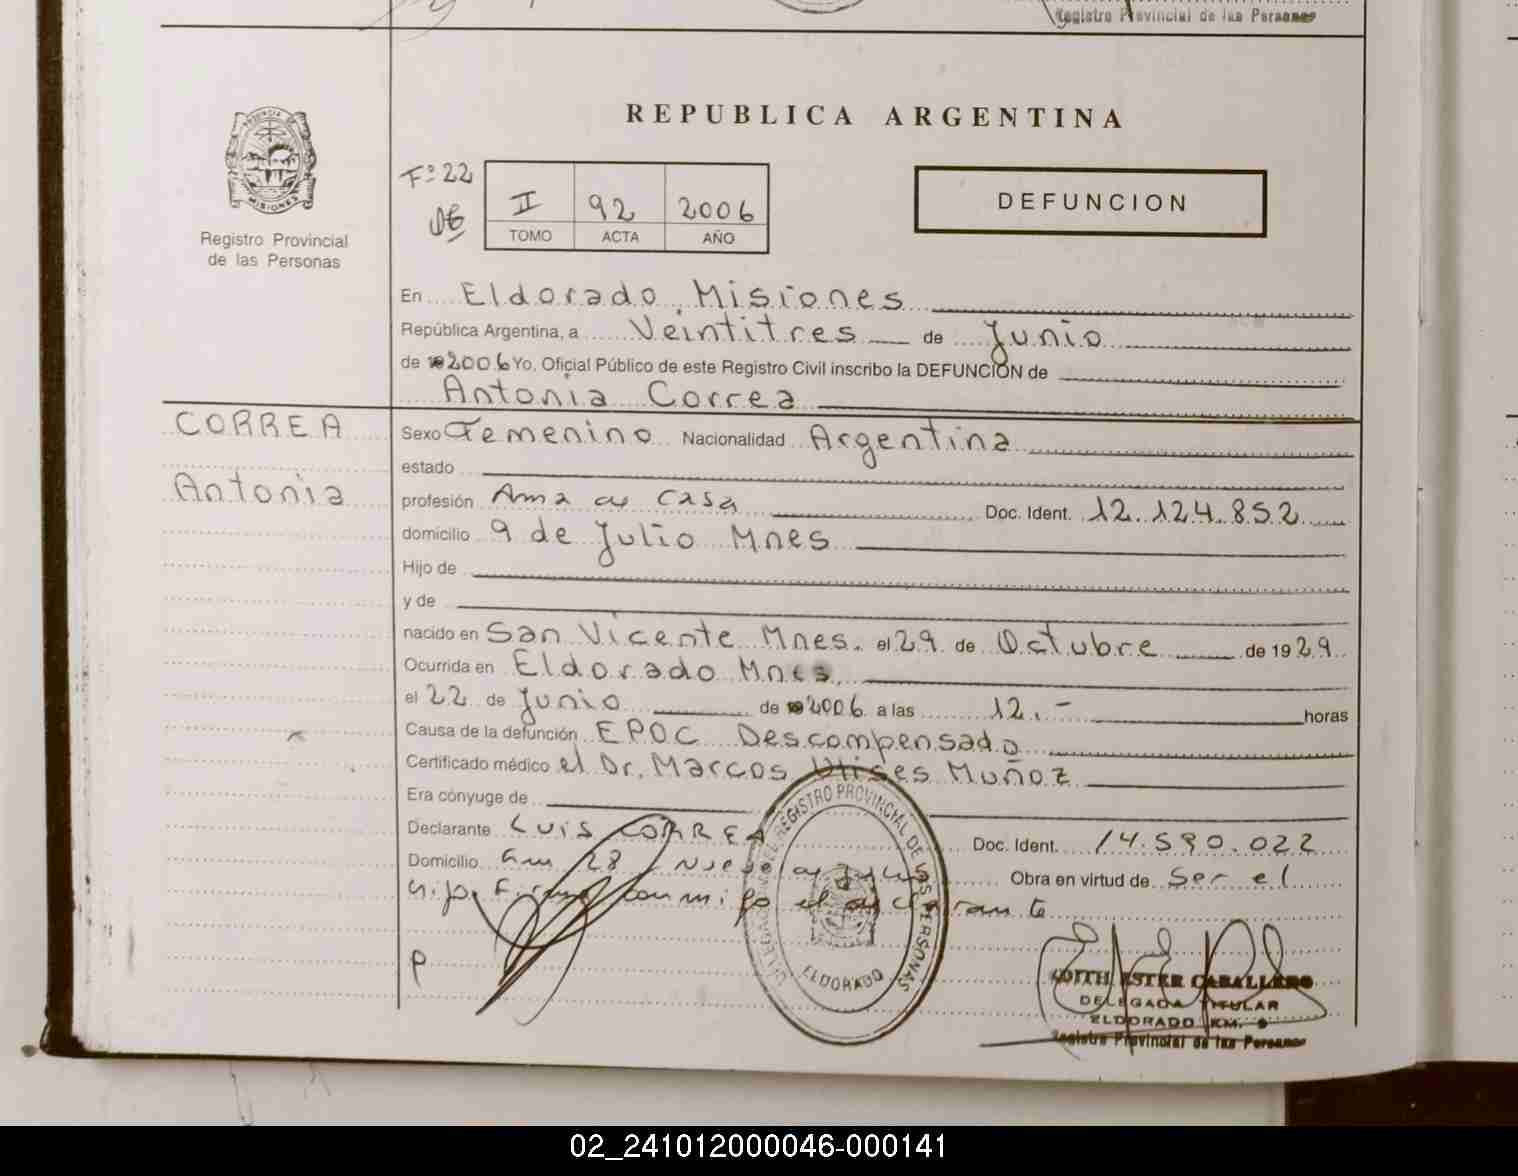 Registro Provincial de las Personas
REPUBLICA ARGENTINA
PROVINCIA DE
MISIONES
Registro Provincial
de las Personas
Fº 22
II 92 2006
TOMO ACTA AÑO
DEFUNCION
En Eldorado, Misiones
República Argentina, a Veintitres de Junio
de 2006 Yo, Oficial Público de este Registro Civil inscribo la DEFUNCIÓN de
Antonia Correa
CORREA
Antonia
Sexo Femenino Nacionalidad Argentina
estado
profesión Ama de casa Doc. Ident. 12.124.852
domicilio 9 de Julio Mnes
Hijo de
y de
nacido en San Vicente Mnes. el 29 de Octubre de 1929
Ocurrida en Eldorado Mnes.
el 22 de Junio de 2006 a las 12.- horas
Causa de la defunción EPOC Descompensado
Certificado médico el Dr. Marcos Ulises Muñoz
Era cónyuge de
Declarante Luis CORREA Doc. Ident. 14.590.022
Domicilio Km 28 Obra en virtud de Ser el
hijo Firma conmigo el declarante
P
DELEGACION DEL REGISTRO PROVINCIAL DE LAS PERSONAS
ELDORADO
EDITH ESTER CABALLERO
DELEGADA TITULAR
ELDORADO KM. 9
Registro Provincial de las Personas
02_241012000046-000141